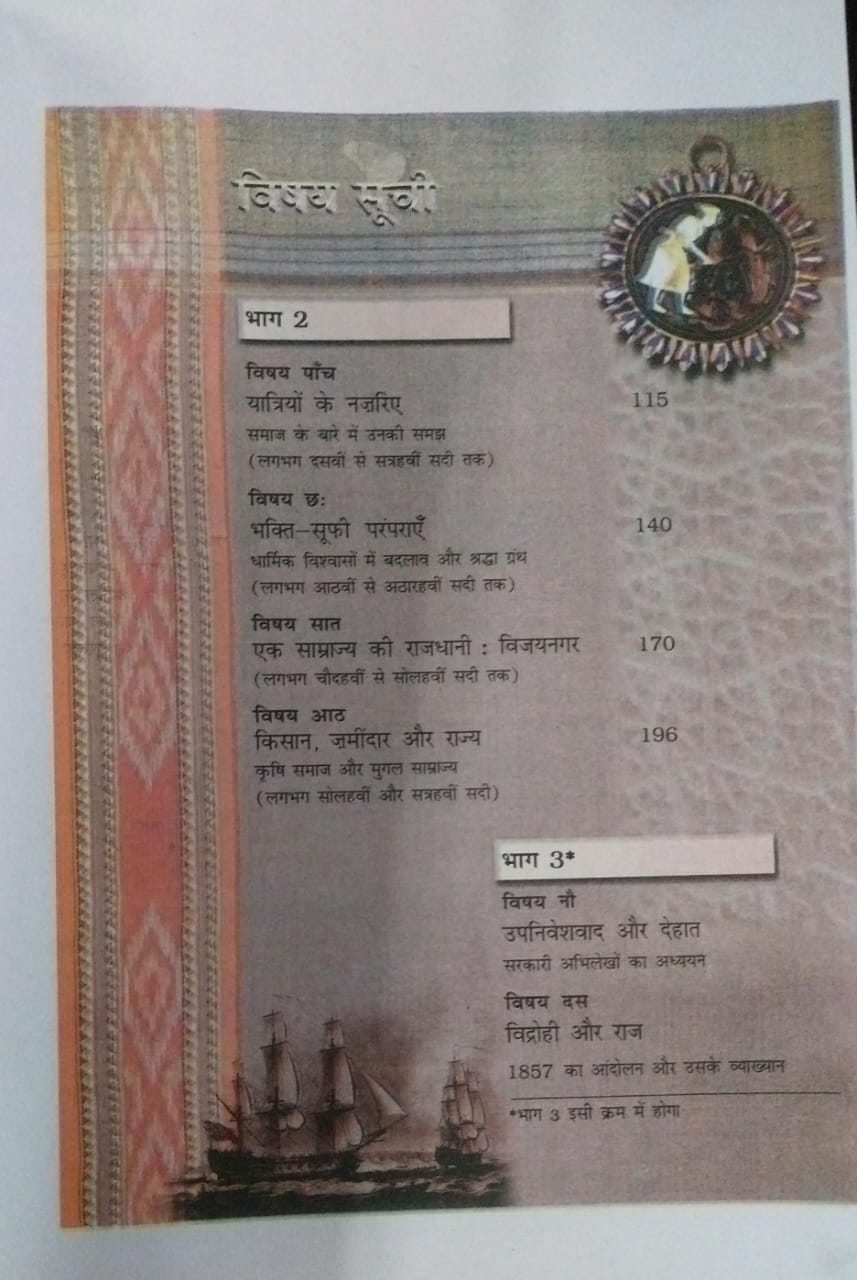 विषय सूची
भाग 2
विषय पाँच
यात्रियों के नज़रिए 115
समाज के बारे में उनकी समझ
(लगभग दसवीं से सत्रहवीं सदी तक)
विषय छः
भक्ति–सूफी परंपराएँ 140
धार्मिक विश्वासों में बदलाव और श्रद्धा ग्रंथ
(लगभग आठवीं से अठारहवीं सदी तक)
विषय सात
एक साम्राज्य की राजधानी : विजयनगर 170
(लगभग चौदहवीं से सोलहवीं सदी तक)
विषय आठ
किसान, ज़मींदार और राज्य 196
कृषि समाज और मुगल साम्राज्य
(लगभग सोलहवीं और सत्रहवीं सदी)
भाग 3*
विषय नौ
उपनिवेशवाद और देहात
सरकारी अभिलेखों का अध्ययन
विषय दस
विद्रोही और राज
1857 का आंदोलन और उसके व्याख्यान
*भाग 3 इसी क्रम में होगा